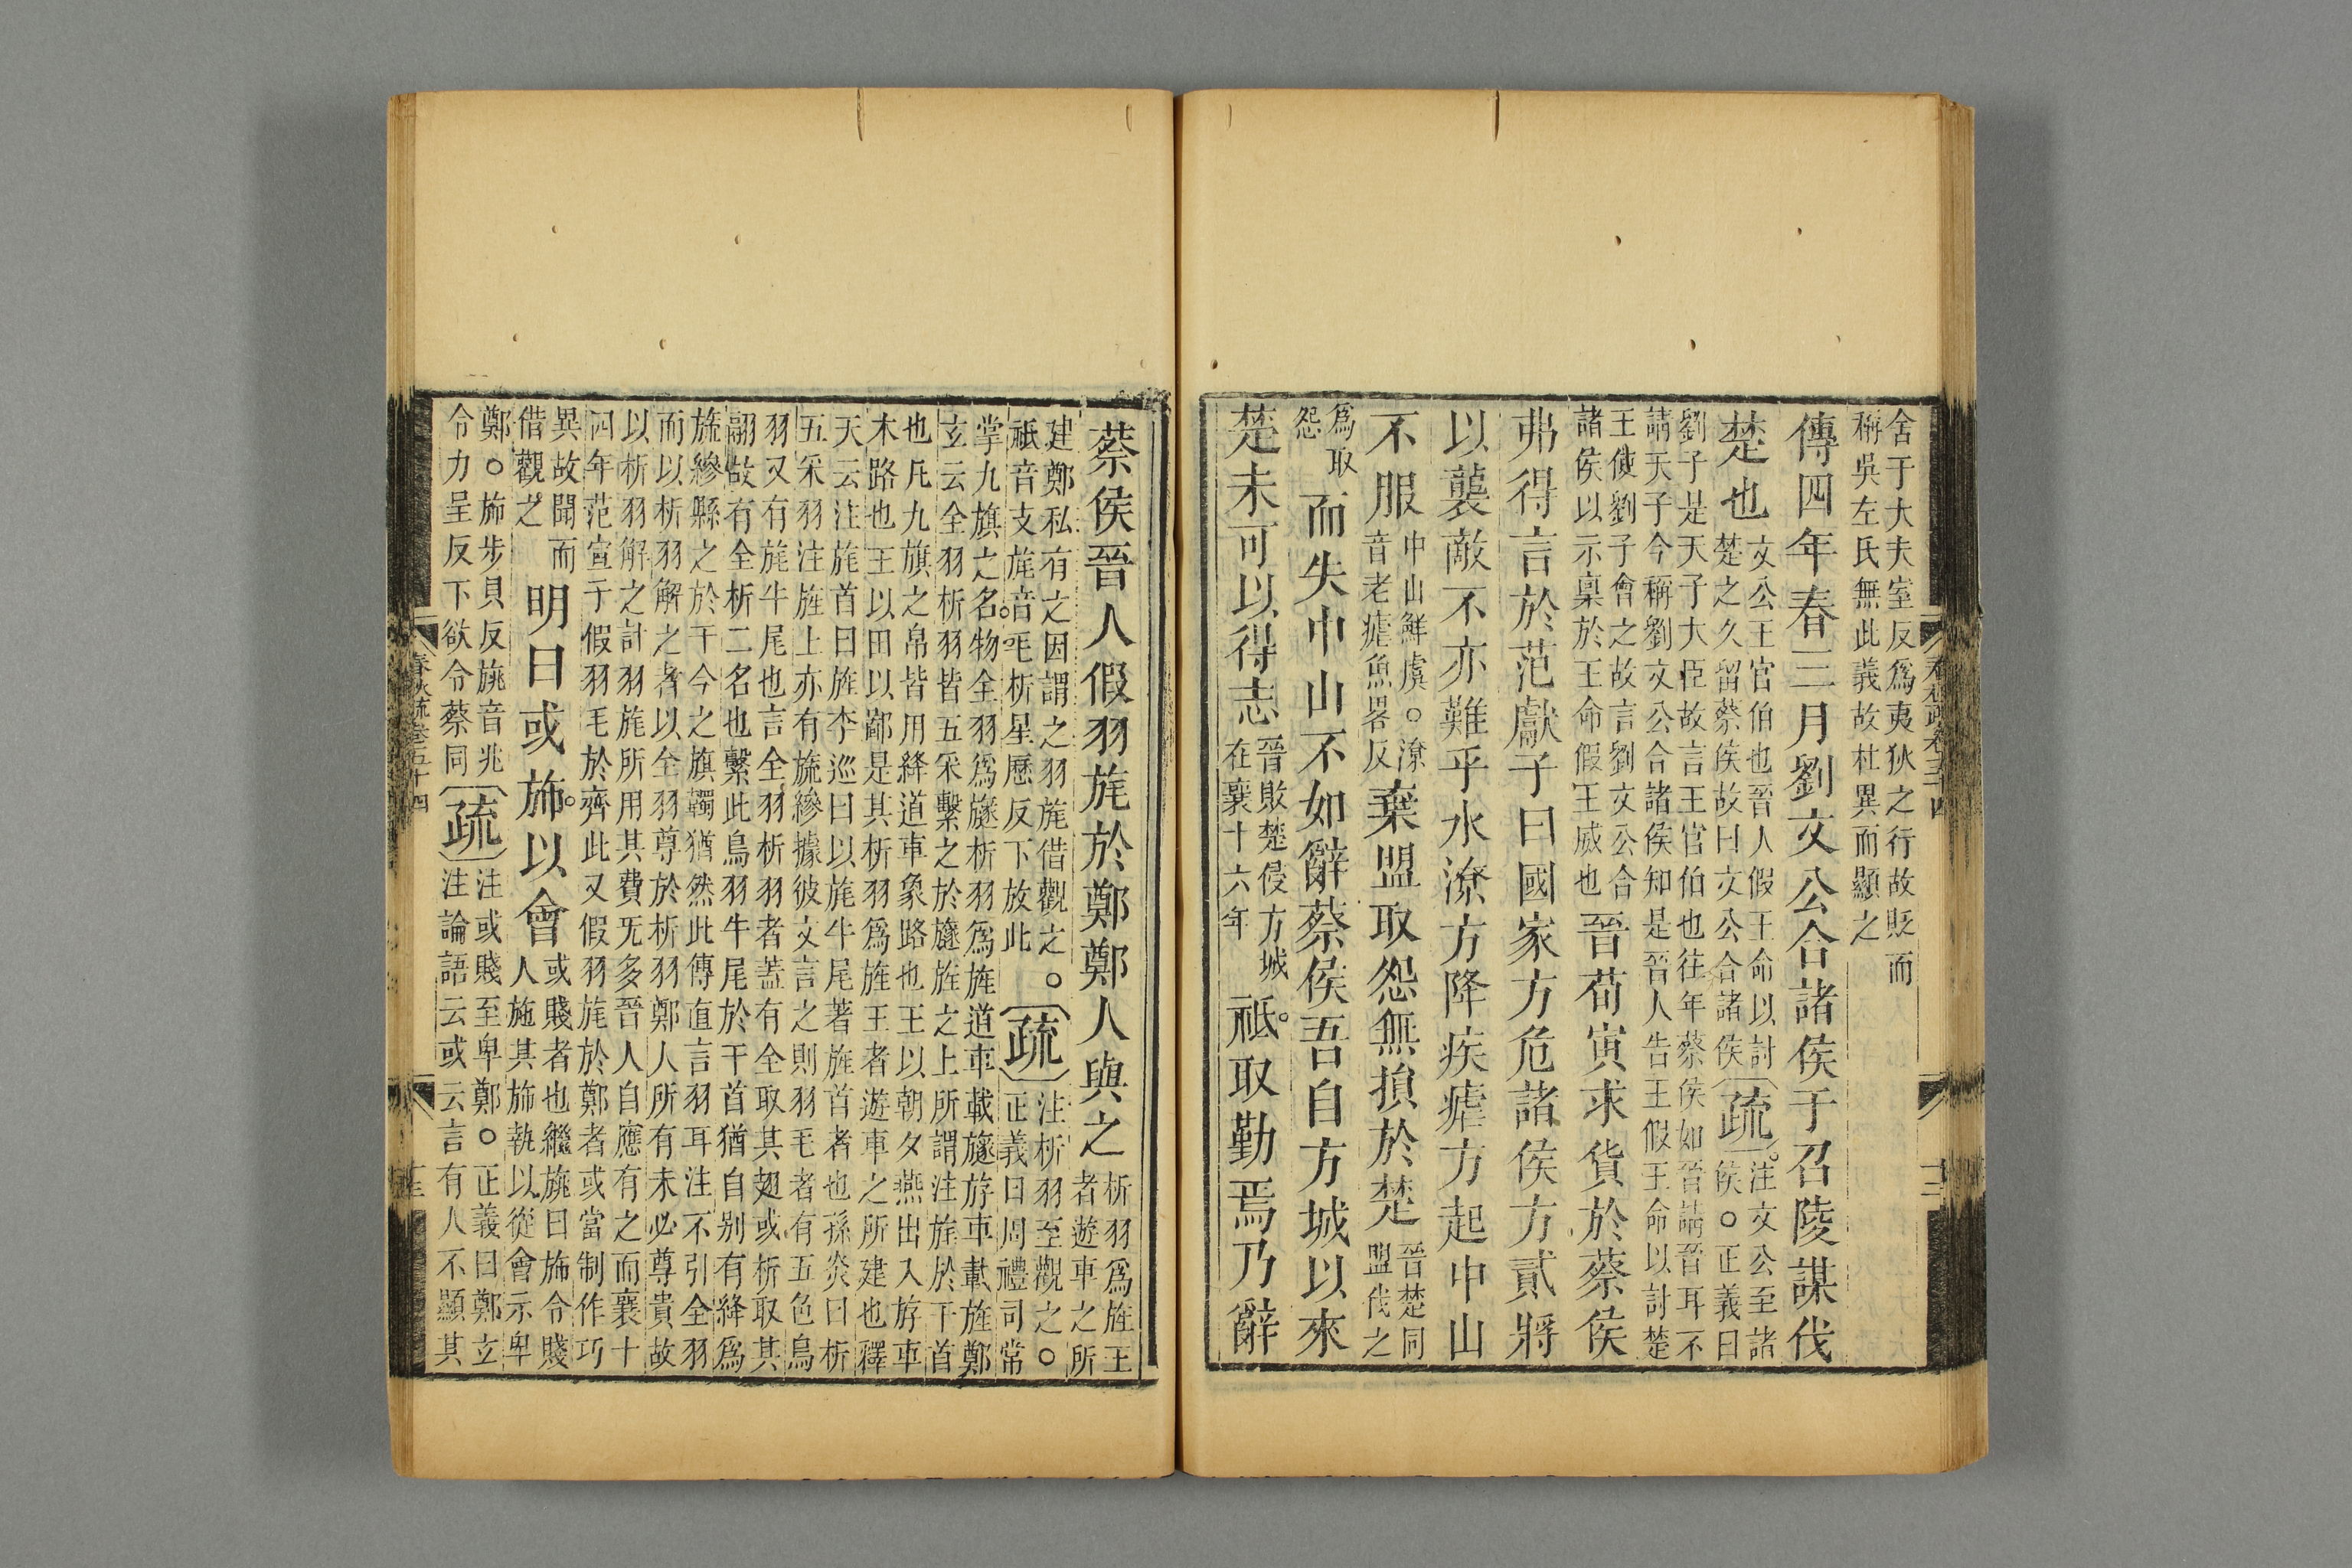 舍于大夫室反爲夷狄之行故貶而
稱吳左氏無此義故杜異而顯之
傳四年春三月劉文公合諸侯于召陵謀伐
楚也文公王官伯也晉人假王命以討楚之久留蔡侯故曰文公合諸侯疏注文公至諸侯○正義曰
劉子是天子大臣故言王官伯也往年蔡侯如晉請晉耳不
請天子今稱劉文公合諸侯知是晉人告王假王命以討楚
王使劉子會之故言劉文公合
諸侯以示稟於王命假王威也晉荀寅求貨於蔡侯
弗得言於范獻子曰國家方危諸侯方貳將
以襲敵不亦難乎水潦方降疾瘧方起中山
不服中山鮮虞○潦音老瘧魚畧反棄盟取怨無損於楚晉楚同盟伐之
爲取怨而失中山不如辭蔡侯吾自方城以來
楚未可以得志晉敗楚侵方城在襄十六年祗取勤焉乃辭
蔡侯晉人假羽旄於鄭鄭人與之析羽爲旌王者遊車之所
建鄭私有之因謂之羽旄借觀之○
祗音支旄音毛析星歷反下放此疏注析羽至觀之○正義曰周禮司常
掌九旗之名物全羽爲旞析羽爲旌道車載旞斿車載旌鄭
玄云全羽析羽皆五采繫之於旞旌之上所謂注旄於干首
也凡九旗之帛皆用絳道車象路也王以朝夕燕出入斿車
木路也王以田以鄙是其析羽爲旌王者遊車之所建也釋
天云注旄首曰旌李巡曰以旄牛尾著旌首者也孫炎曰析
五采羽注旌上亦有旒縿據彼文言之則羽毛者有五色鳥
羽又有旄牛尾也言全羽析羽者蓋有全取其翅或析取其
翮故有全析二名也繫此鳥羽牛尾於干首猶自別有絳爲
旒縿縣之於干今之旗䪝猶然此傳直言羽耳注不引全羽
而以析羽解之者以全羽尊於析羽鄭人所有未必尊貴故
以析羽解之計羽旄所用其費旡多晉人自應有之而襄十
四年范宣子假羽毛於齊此又假羽旄於鄭者或當制作巧
異故聞而借觀之明日或旆以會或賤者也繼旐曰旆令賤人施其旆執以從會示卑
鄭○旆步貝反旐音兆
令力呈反下欲令蔡同疏注或賤至卑鄭○正義曰鄭玄注論語云或云言有人不顯其
春秋疏卷五十四